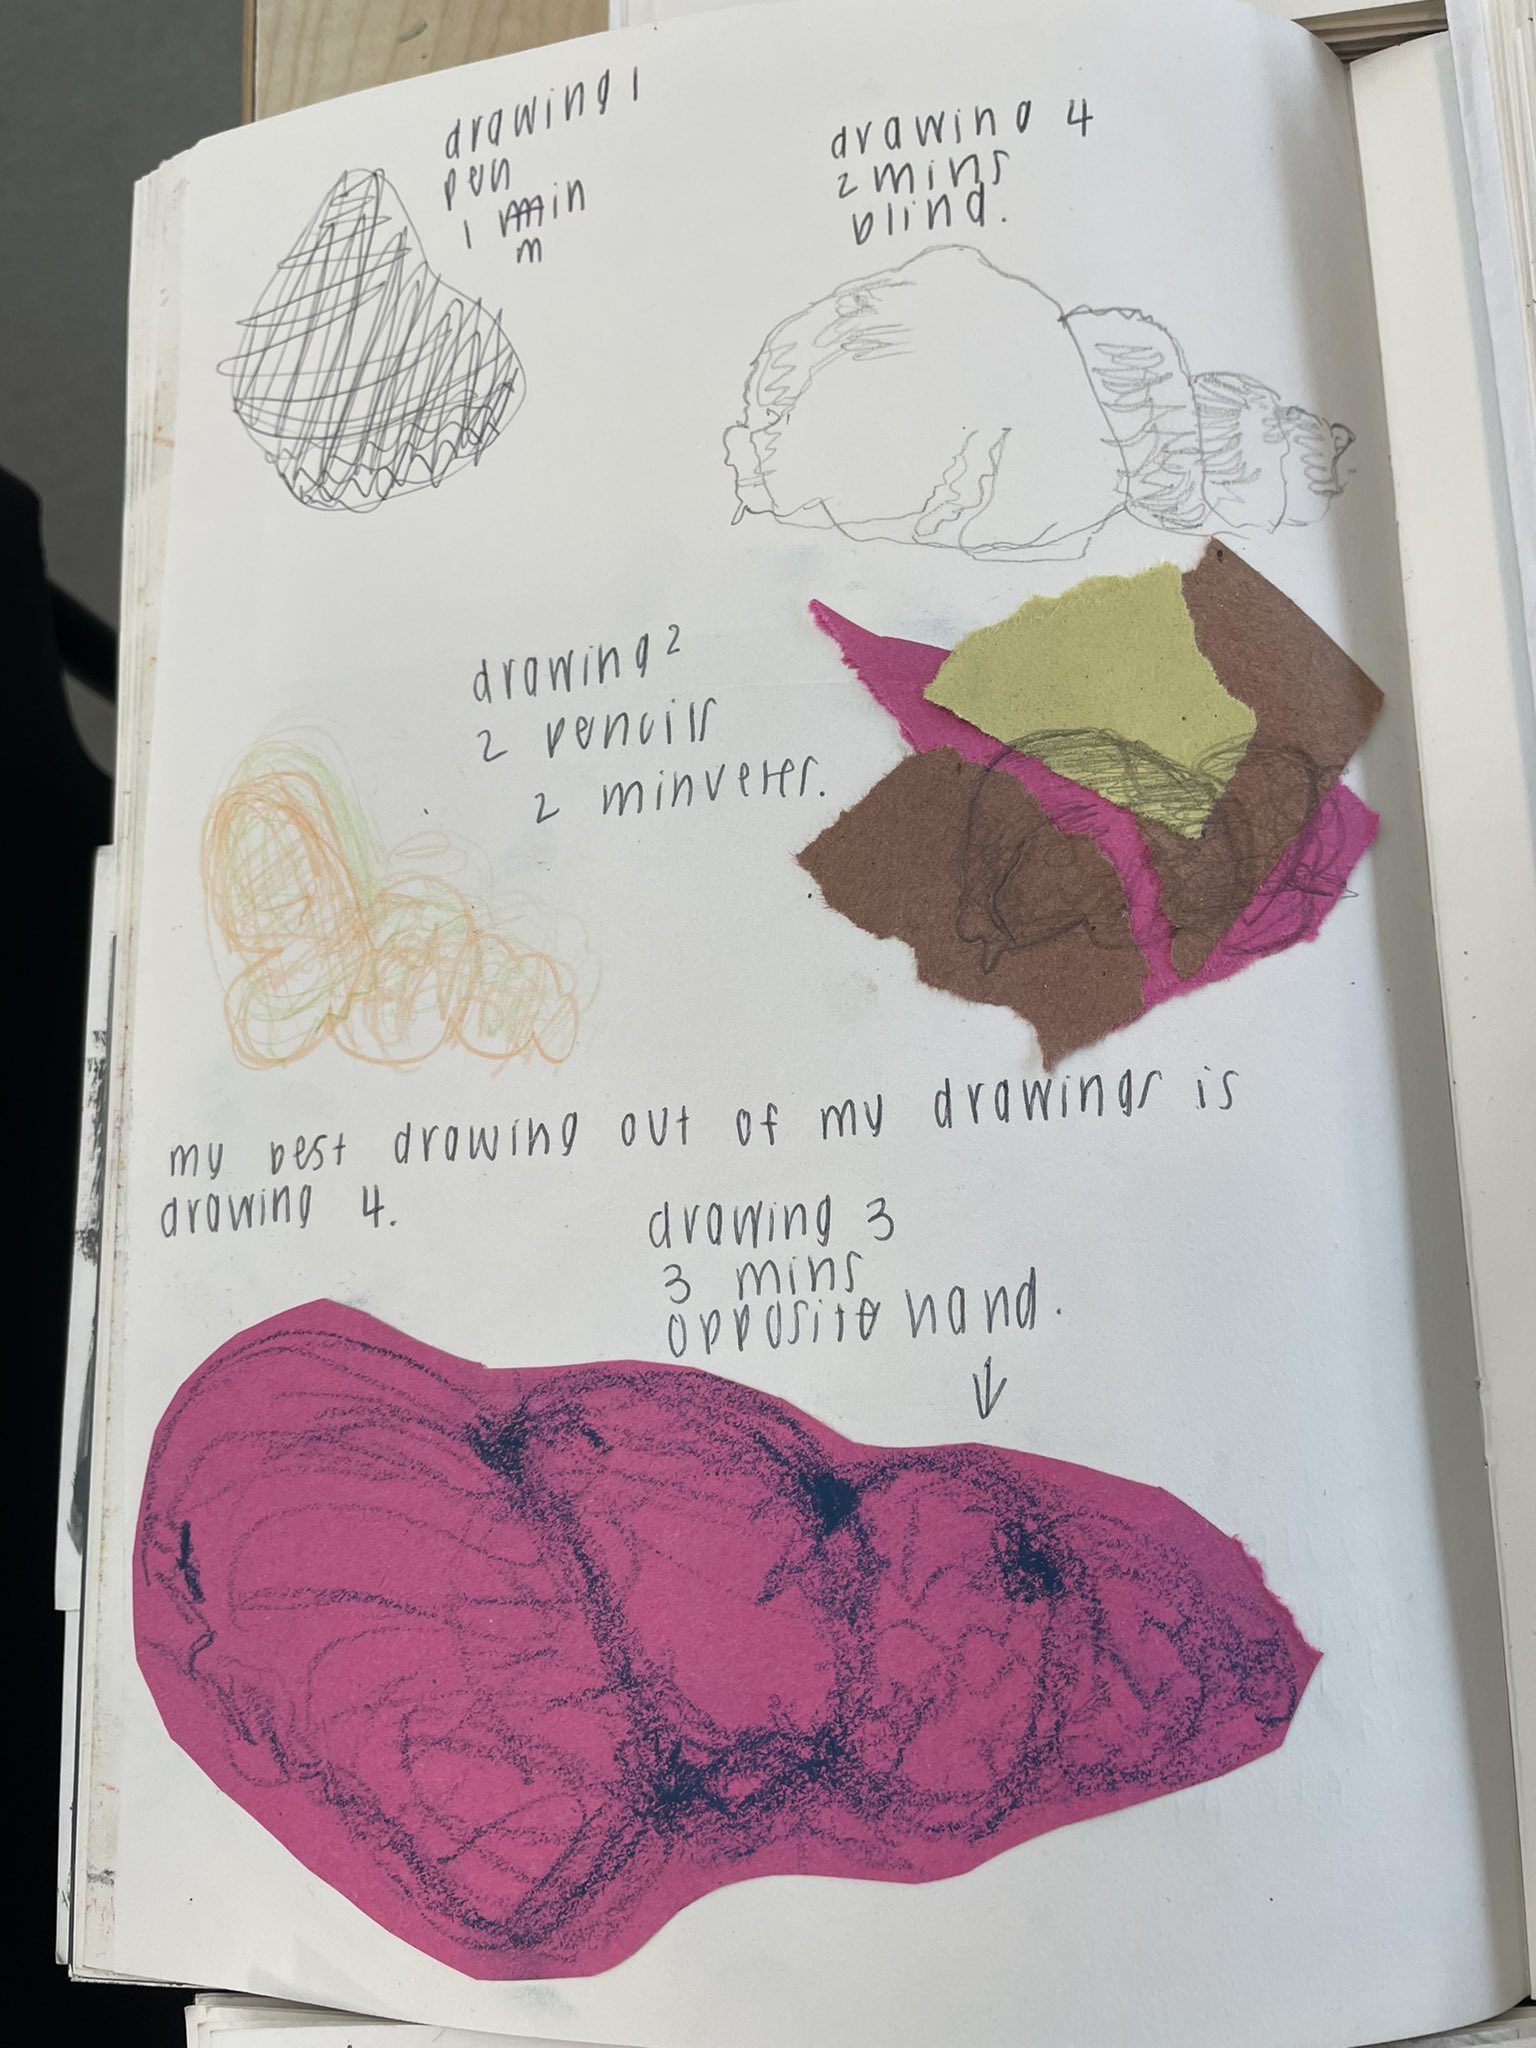 drawing 1
pen
1 min
m
drawing 4
2 mins
blind.
drawing 2
2 pencils
2 minuetes.
my best drawing out of my drawings is
drawing 4.
drawing 3
3 mins
opposite hand.